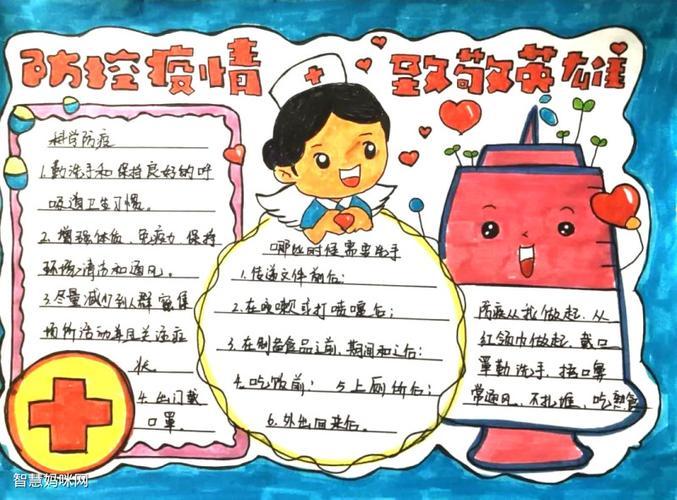 防控疫情 致敬英雄
科学防疫
1.勤洗手和保持良好的呼
吸道卫生习惯。
2.增强体质、免疫力、保持
环境清洁和通风。
3.尽量减少到人群密集
场所活动并且关注症
状。
4.出门戴
口罩。
哪些时候需要洗手
1.传递文件前后;
2.在咳嗽或打喷嚏后;
3.在制备食品之前、期间和之后;
4.吃饭前; 5.上厕所后;
6.外出回来后。
防疫从我做起、从
红领巾做起、戴口
罩勤洗手、捂口鼻
常通风、不扎堆、吃熟食
智慧妈咪网